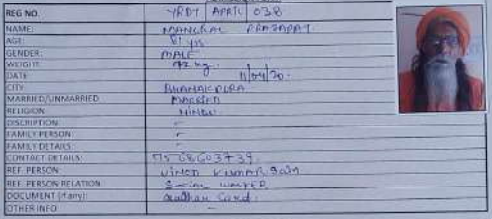 REG NO. YRDY APRIL 038
NAME: MANGLAL PRAJAPAT.
AGE: 81 yrs
GENDER: MALE
WEIGHT: 42 kg.
DATE: 11/04/20.
CITY:
MARRIED/UNMARRIED MARRIED
RELIGION HINDU
DISCRIPTION –
FAMILY PERSON: –
FAMILY DETAILS: –
CONTACT DETAILS:
REF. PERSON VINOD KUMAR JAIN
REF. PERSON RELATION Social WORKER
DOCUMENT (if any): Aadhar Card.
OTHER INFO –